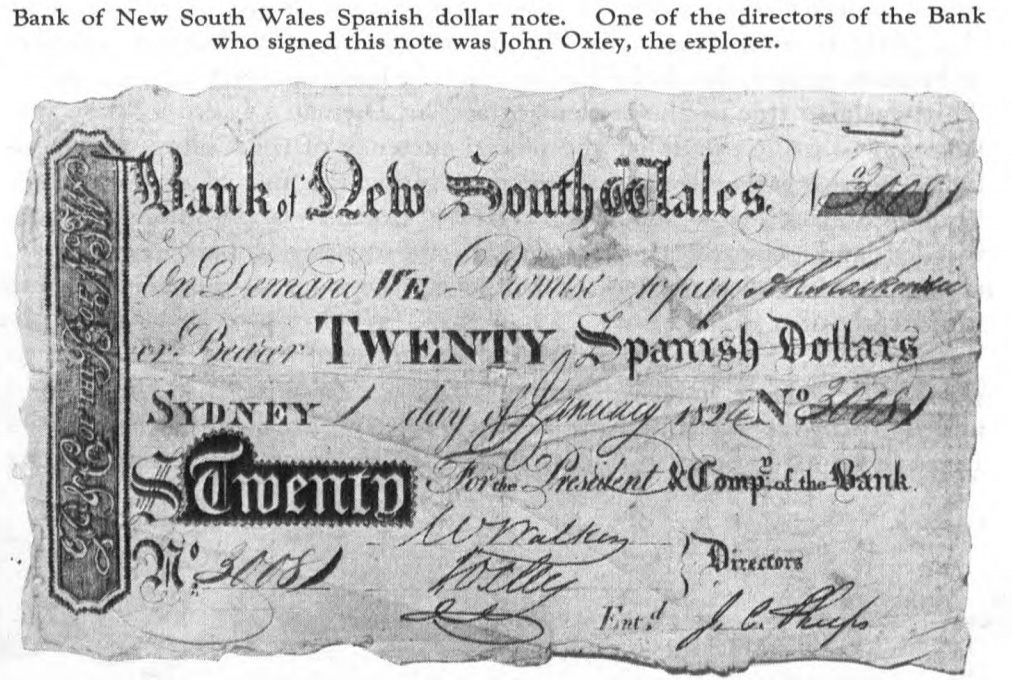 Bank of New South Wales Spanish dollar note. One of the directors of the Bank
who signed this note was John Oxley, the explorer.
Bank of New South Wales. No 3008
On Demand WE Promise to pay
or Bearer TWENTY Spanish Dollars
SYDNEY 1 day of January 182 No 3008
$ Twenty For the President & Compy. of the Bank.
W Walker
No. 3008 Directors
Ent.d J. C. Phelps